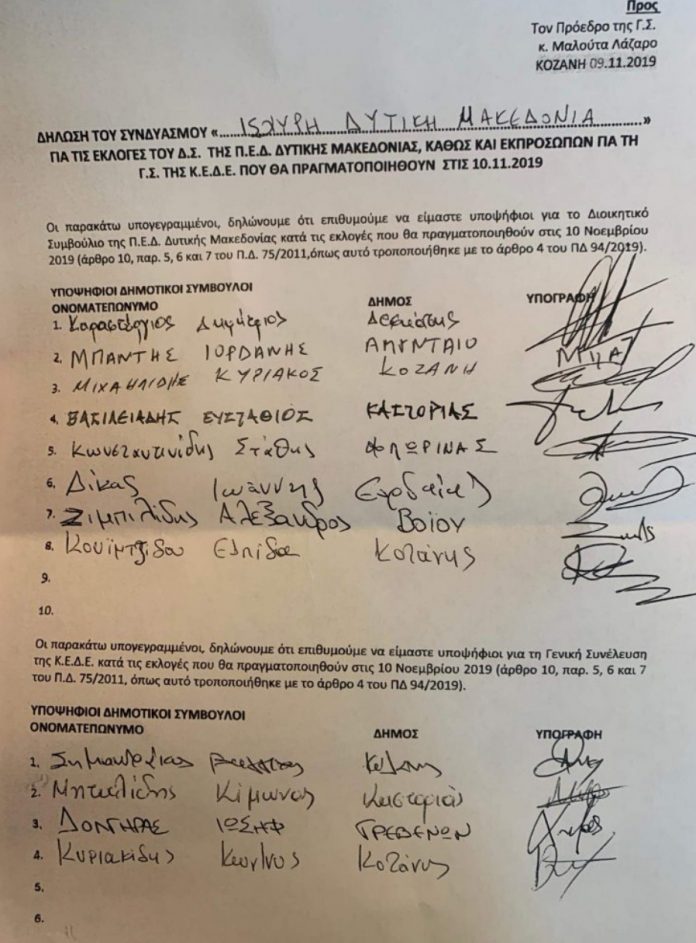 Προς
Τον Πρόεδρο της Γ.Σ.
κ. Μαλούτα Λάζαρο
ΚΟΖΑΝΗ 09.11.2019
ΔΗΛΩΣΗ ΤΟΥ ΣΥΝΔΥΑΣΜΟΥ «...ΙΣΧΥΡΗ ΔΥΤΙΚΗ ΜΑΚΕΔΟΝΙΑ...»
ΓΙΑ ΤΙΣ ΕΚΛΟΓΕΣ ΤΟΥ Δ.Σ. ΤΗΣ Π.Ε.Δ. ΔΥΤΙΚΗΣ ΜΑΚΕΔΟΝΙΑΣ, ΚΑΘΩΣ ΚΑΙ ΕΚΠΡΟΣΩΠΩΝ ΓΙΑ ΤΗ
Γ.Σ. ΤΗΣ Κ.Ε.Δ.Ε. ΠΟΥ ΘΑ ΠΡΑΓΜΑΤΟΠΟΙΗΘΟΥΝ ΣΤΙΣ 10.11.2019
Οι παρακάτω υπογεγραμμένοι, δηλώνουμε ότι επιθυμούμε να είμαστε υποψήφιοι για το Διοικητικό
Συμβούλιο της Π.Ε.Δ. Δυτικής Μακεδονίας κατά τις εκλογές που θα πραγματοποιηθούν στις 10 Νοεμβρίου
2019 (άρθρο 10, παρ. 5, 6 και 7 του Π.Δ. 75/2011,όπως αυτό τροποποιήθηκε με το άρθρο 4 του ΠΔ 94/2019).
ΥΠΟΨΗΦΙΟΙ ΔΗΜΟΤΙΚΟΙ ΣΥΜΒΟΥΛΟΙ
ΟΝΟΜΑΤΕΠΩΝΥΜΟ ΔΗΜΟΣ ΥΠΟΓΡΑΦΗ
1. Καραστέργιος Δημήτριος Δεσκάτης
2. ΜΠΑΝΤΗΣ ΙΟΡΔΑΝΗΣ ΑΜΥΝΤΑΙΟ
3. ΜΙΧΑΗΛΙΔΗΣ ΚΥΡΙΑΚΟΣ ΚΟΖΑΝΗ
4. ΒΑΣΙΛΕΙΑΔΗΣ ΕΥΣΤΑΘΙΟΣ ΚΑΣΤΟΡΙΑΣ
5. Κωνσταντινίδης Στάθης ΦΛΩΡΙΝΑΣ
6. Δίκας Ιωάννης Εορδαίας
7. Ζιμπιλίδης Αλέξανδρος Βοΐου
8. Κουϊμτζίδου Ελπίδα Κοζάνης
9.
10.
Οι παρακάτω υπογεγραμμένοι, δηλώνουμε ότι επιθυμούμε να είμαστε υποψήφιοι για τη Γενική Συνέλευση
της Κ.Ε.Δ.Ε. κατά τις εκλογές που θα πραγματοποιηθούν στις 10 Νοεμβρίου 2019 (άρθρο 10, παρ. 5, 6 και 7
του Π.Δ. 75/2011, όπως αυτό τροποποιήθηκε με το άρθρο 4 του ΠΔ 94/2019).
ΥΠΟΨΗΦΙΟΙ ΔΗΜΟΤΙΚΟΙ ΣΥΜΒΟΥΛΟΙ
ΟΝΟΜΑΤΕΠΩΝΥΜΟ ΔΗΜΟΣ ΥΠΟΓΡΑΦΗ
1. Κοζάνης
2. Κίμωνας Καστοριάς
3. ΙΩΣΗΦ ΓΡΕΒΕΝΩΝ
4. Κυριακίδης Κων/νος Κοζάνης
5.
6.